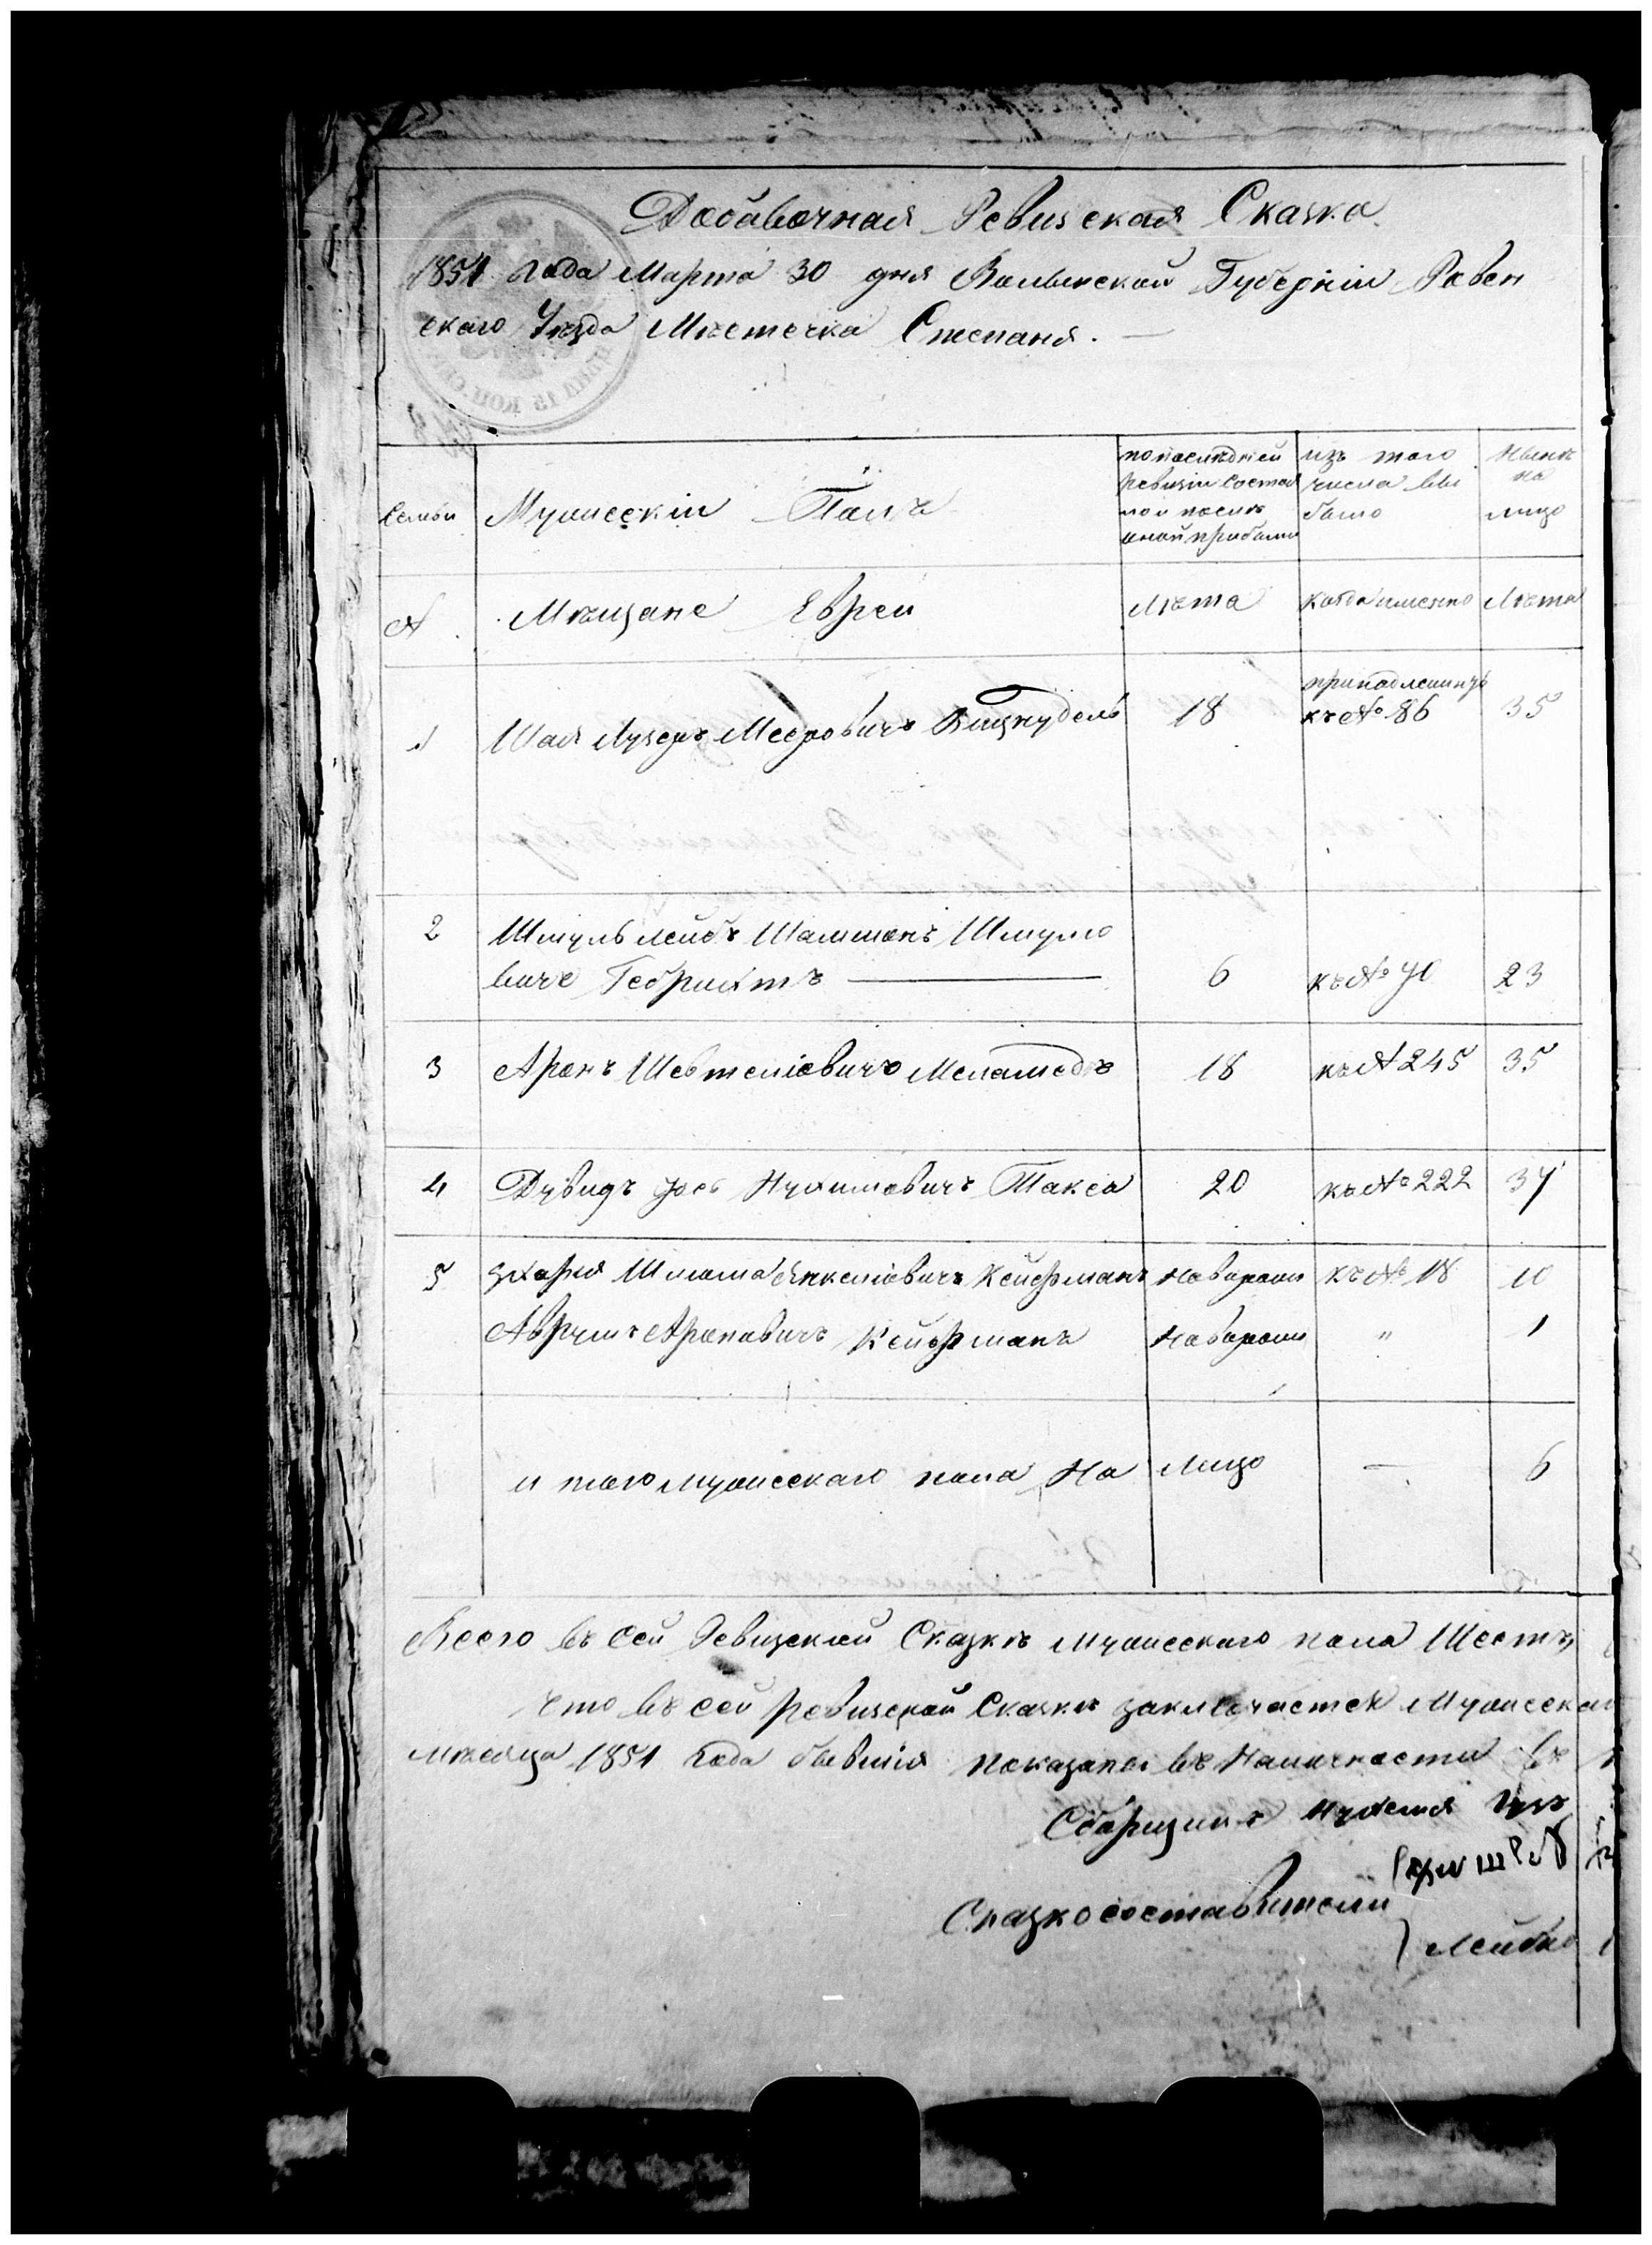 Добавочная Ревизская Сказка
1851 года Марта 30 дня Волынской Губерніи Ровен
скаго Уѣзда Мѣстечка Степаня. —
Семьи
Мужескій Полъ
по последней
ревизіи состоя
ло и после
оной прибыло
изъ того
числа вы
было
Нынѣ
на
лицо
№
Мѣщане Евреи
Лѣта
когда именно
Лѣта
1
Шая Лузеръ Меэровичъ
18
принадлежитъ
къ № 86
35
2
Шмуль Лейбъ Шлиома Шмуло
вичъ —
6
къ № 70
23
3
Аронъ Шевтеліовичъ Меламедъ
18
къ № 245
35
4
Дувидъ Нухимовичъ Такса
20
къ № 222
37
5
Зхарія Шлиома Янкеліовичъ Кейфманъ
къ № 18
10
Аврумъ Ароновичъ Кейфманъ
"
1
и того мужескаго пола На лицо
—
6
Всего въ сей Ревизской Сказкѣ мужескаго пола Шесть
что въ сей ревизской Сказке заключается Мужеска
месяца 1851 года бывшія показаны въ Наличности въ
Сборщикъ
Сказкосоставители
Лейбко
15 КОП. СЕР